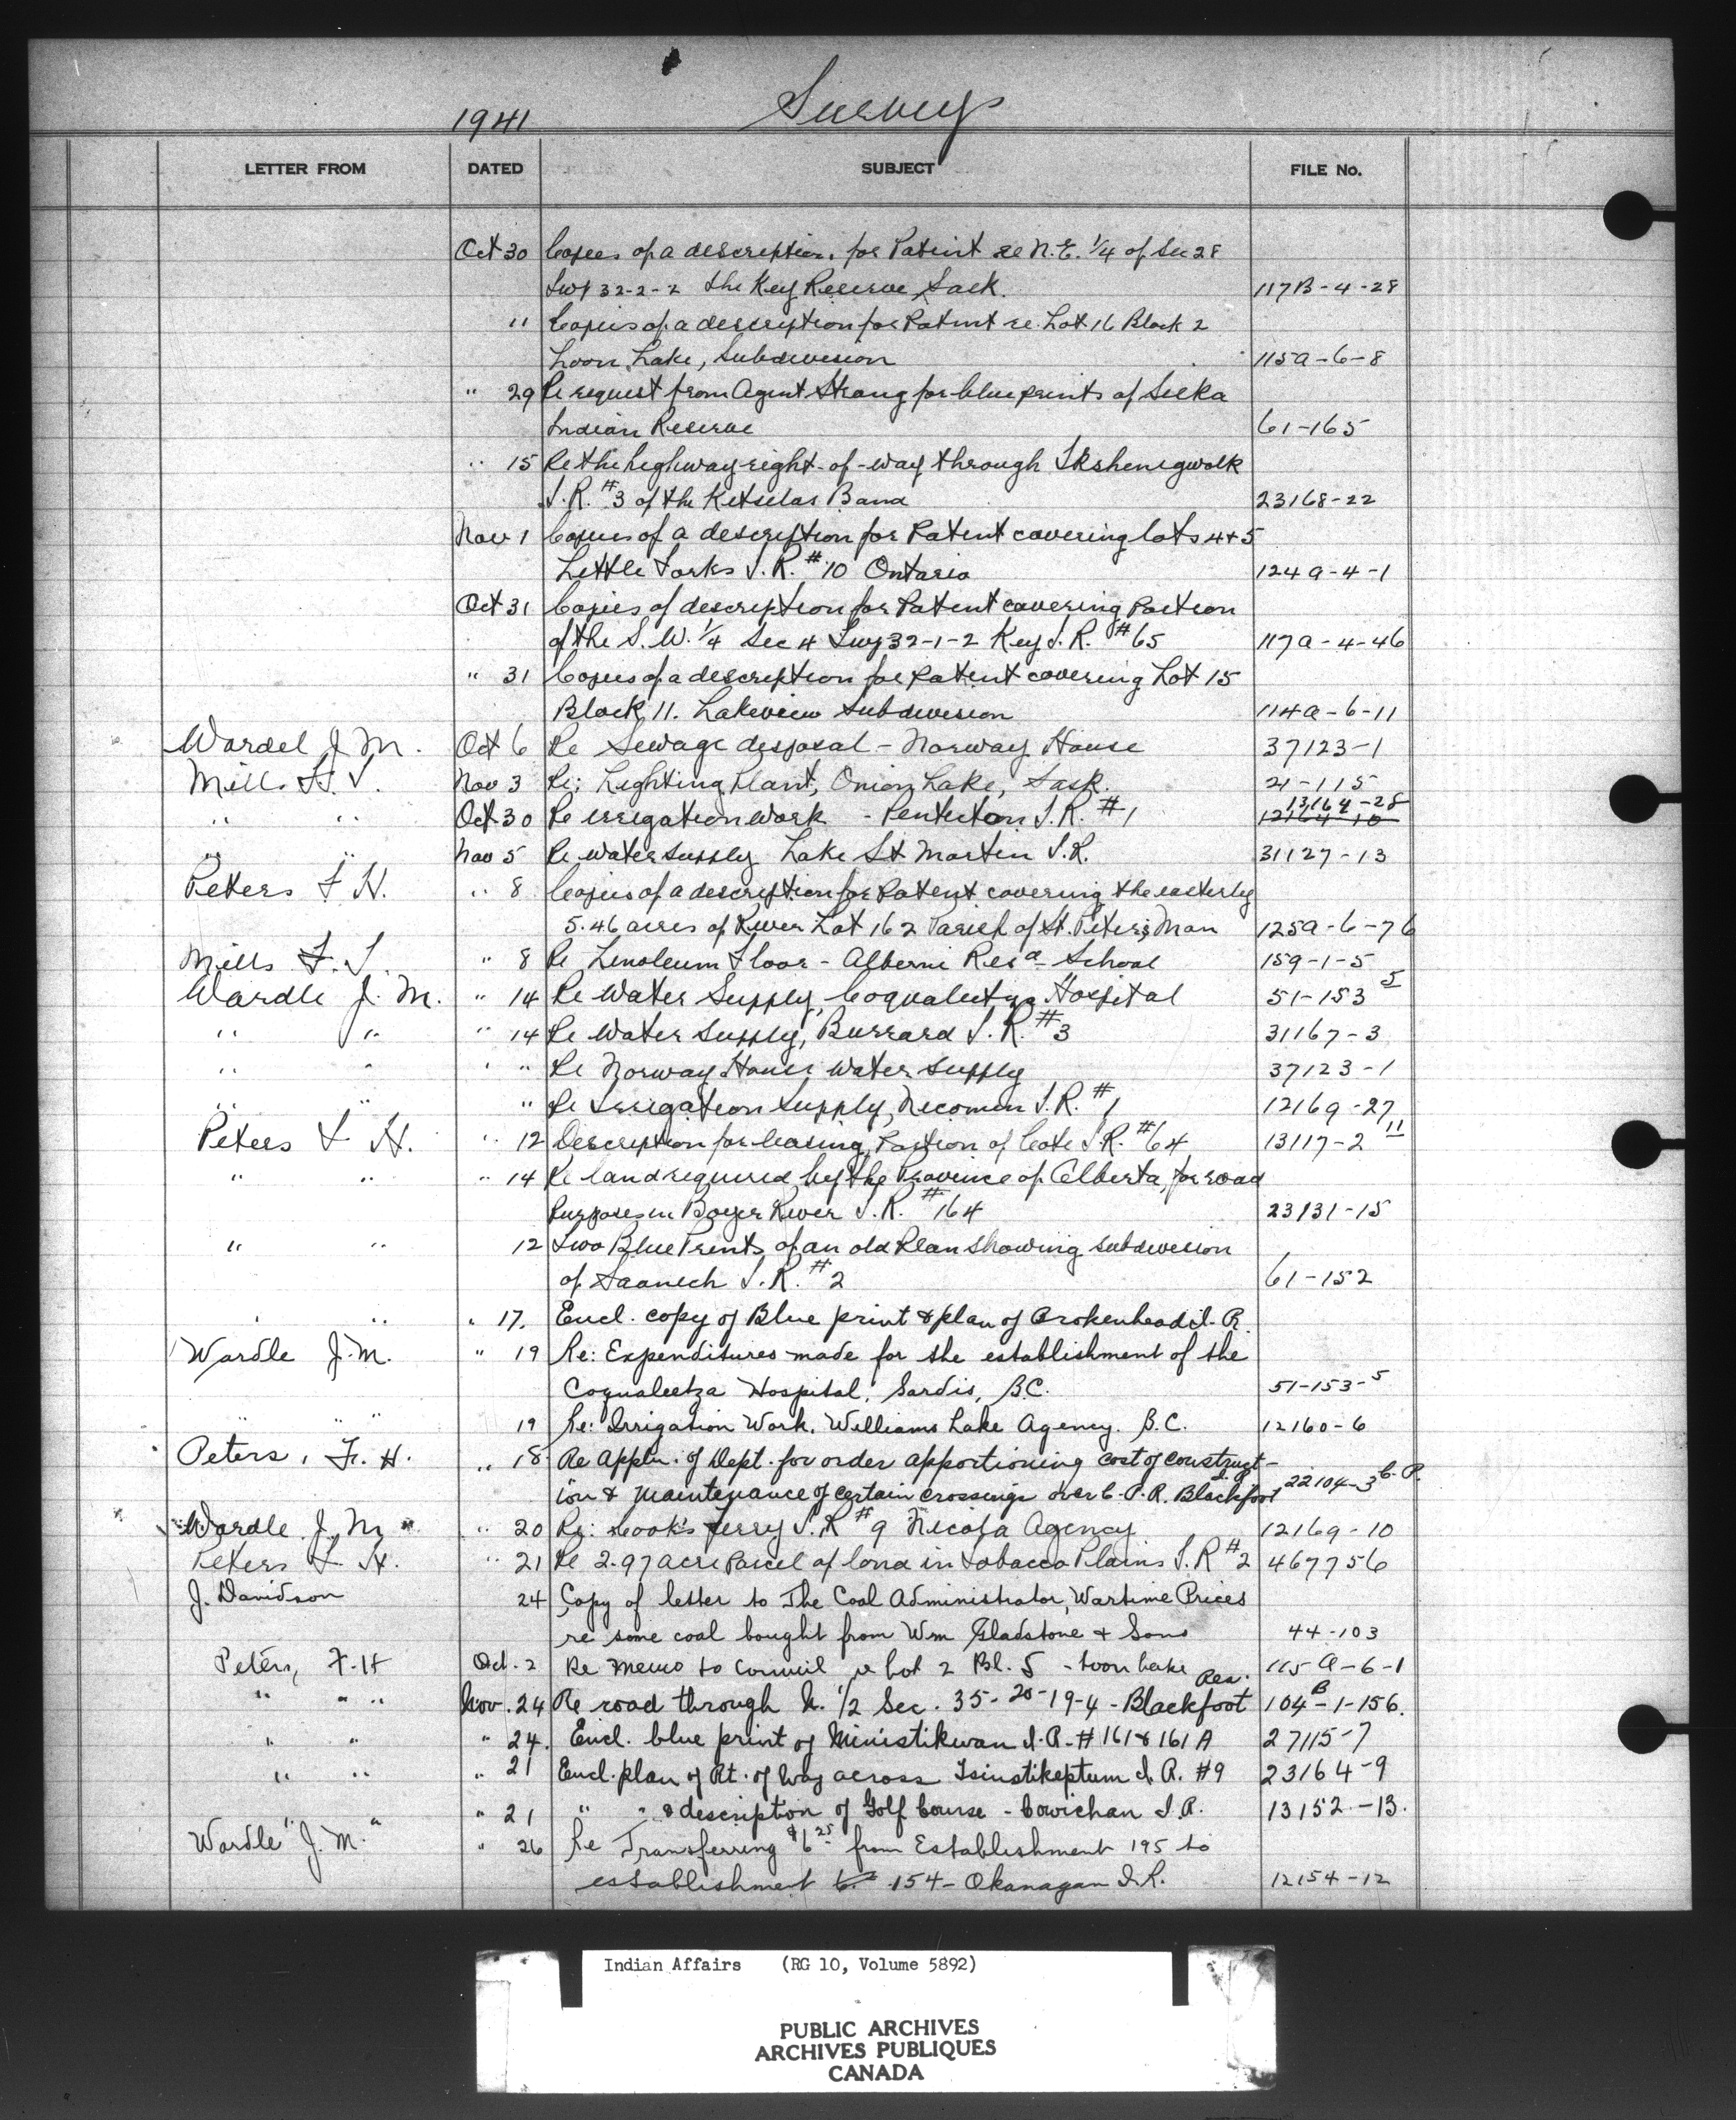 1941 Surveys
LETTER FROM DATED SUBJECT FILE No.
Oct 30 Copies of a description for Patent re N.E. 1/4 of Sec 28
Twp 32-2-2 The Key Reserve, Sask. 117B-4-28
" Copies of a description for Patent re Lot 16 Block 2
Loon Lake, Subdivision 115a-6-8
" 29 Re request from Agent Strang for blueprints of Seeka
Indian Reserve 61-165
" 15 Re the highway right-of-way through
I.R. #3 of the Kitselas Band 23168-22
Nov 1 Copies of a description for Patent covering lots 4+5
Little Forks I.R. #10 Ontario 124a-4-1
Oct 31 Copies of description for Patent covering Portion
of the S.W. 1/4 Sec 4 Twp 32-1-2 Key I.R. #65 117a-4-46
" 31 Copies of a description for Patent covering Lot 15
Block 11. Lakeview Subdivision 114a-6-11
Wardel J.M. Oct 6 Re Sewage disposal - Norway House 37123-1
Mills F.S. Nov 3 Re; Lighting Plant, Onion Lake, Sask. 21-115
" " Oct 30 Re irrigation work - Penticton I.R. #1 13164-28
" " Nov 5 Re water supply Lake St Martin I.R. 31127-13
Peters F H. " 8 Copies of a description for Patent covering the easterly
5.46 acres of River Lot 162 Parish of St. Peters, Man 125a-6-76
Mills F.S. " 8 Re Linoleum Floor - Alberni Resd School 159-1-5
Wardle J.M. " 14 Re Water Supply, Coqualeetza Hospital 51-153 5
" " " 14 Re Water Supply, Burrard I.R. #3 31167-3
" " " " Re Norway House water supply 37123-1
" " " Re Irrigation Supply, Nicomen I.R. #1 12169-27
Peters F H. " 12 Description for leasing, Portion of Cote I.R. #64 13117-2 11
" " " 14 Re land required by the Province of Alberta, for road
Purposes in Boyer River I.R. #164 23131-15
" " 12 Two Blue Prints of an old Plan showing subdivision
of Saanich I.R. #2 61-152
" " " 17. Encl. copy of Blue print & plan of Brokenhead I.R.
Wardle J.M. " 19 Re: Expenditures made for the establishment of the
Coqualeetza Hospital, Sardis, B.C. 51-153-5
" " " 19 Re: Irrigation Work. Williams Lake Agency. B.C. 12160-6
Peters, F. H. " 18 Re Appln. of Dept. for order apportioning cost of construct-
ion & maintenance of certain crossings over C.P.R. Blackfoot I.R. 22104-3 C.P.
Wardle J.M. " 20 Re: Cook's Ferry I.R #9 Nicola Agency 12169-10
Peters F H. " 21 Re 2.97 acre Parcel of land in Tobacco Plains I.R #2 467756
J. Davidson 24 Copy of letter to The Coal Administrator, Wartime Prices
re some coal bought from Wm Gladstone & Sons 44-103
Peters, F.H Oct. 2 Re Memo to Council re Lot 2 Bl. 5 - Loon Lake 115 A-6-1
" " " Nov. 24 Re road through N. 1/2 Sec. 35-20-19-4 - Blackfoot Res. 104B-1-156.
" " " 24. Encl. blue print of Ministikwan I.R. # 161 & 161 A 27115-7
" " " 21 Encl. plan of Rt. of Way across Tsinstikeptum I. R. #9 23164-9
" " " 21 " " & description of Golf Course - Cowichan I.R. 13152-13.
Wardle J.M. " 26 Re Transferring $6 25 from Establishment 195 to
establishment 154 - Okanagan I.R. 12154-12
Indian Affairs (RG 10, Volume 5892)
PUBLIC ARCHIVES
ARCHIVES PUBLIQUES
CANADA